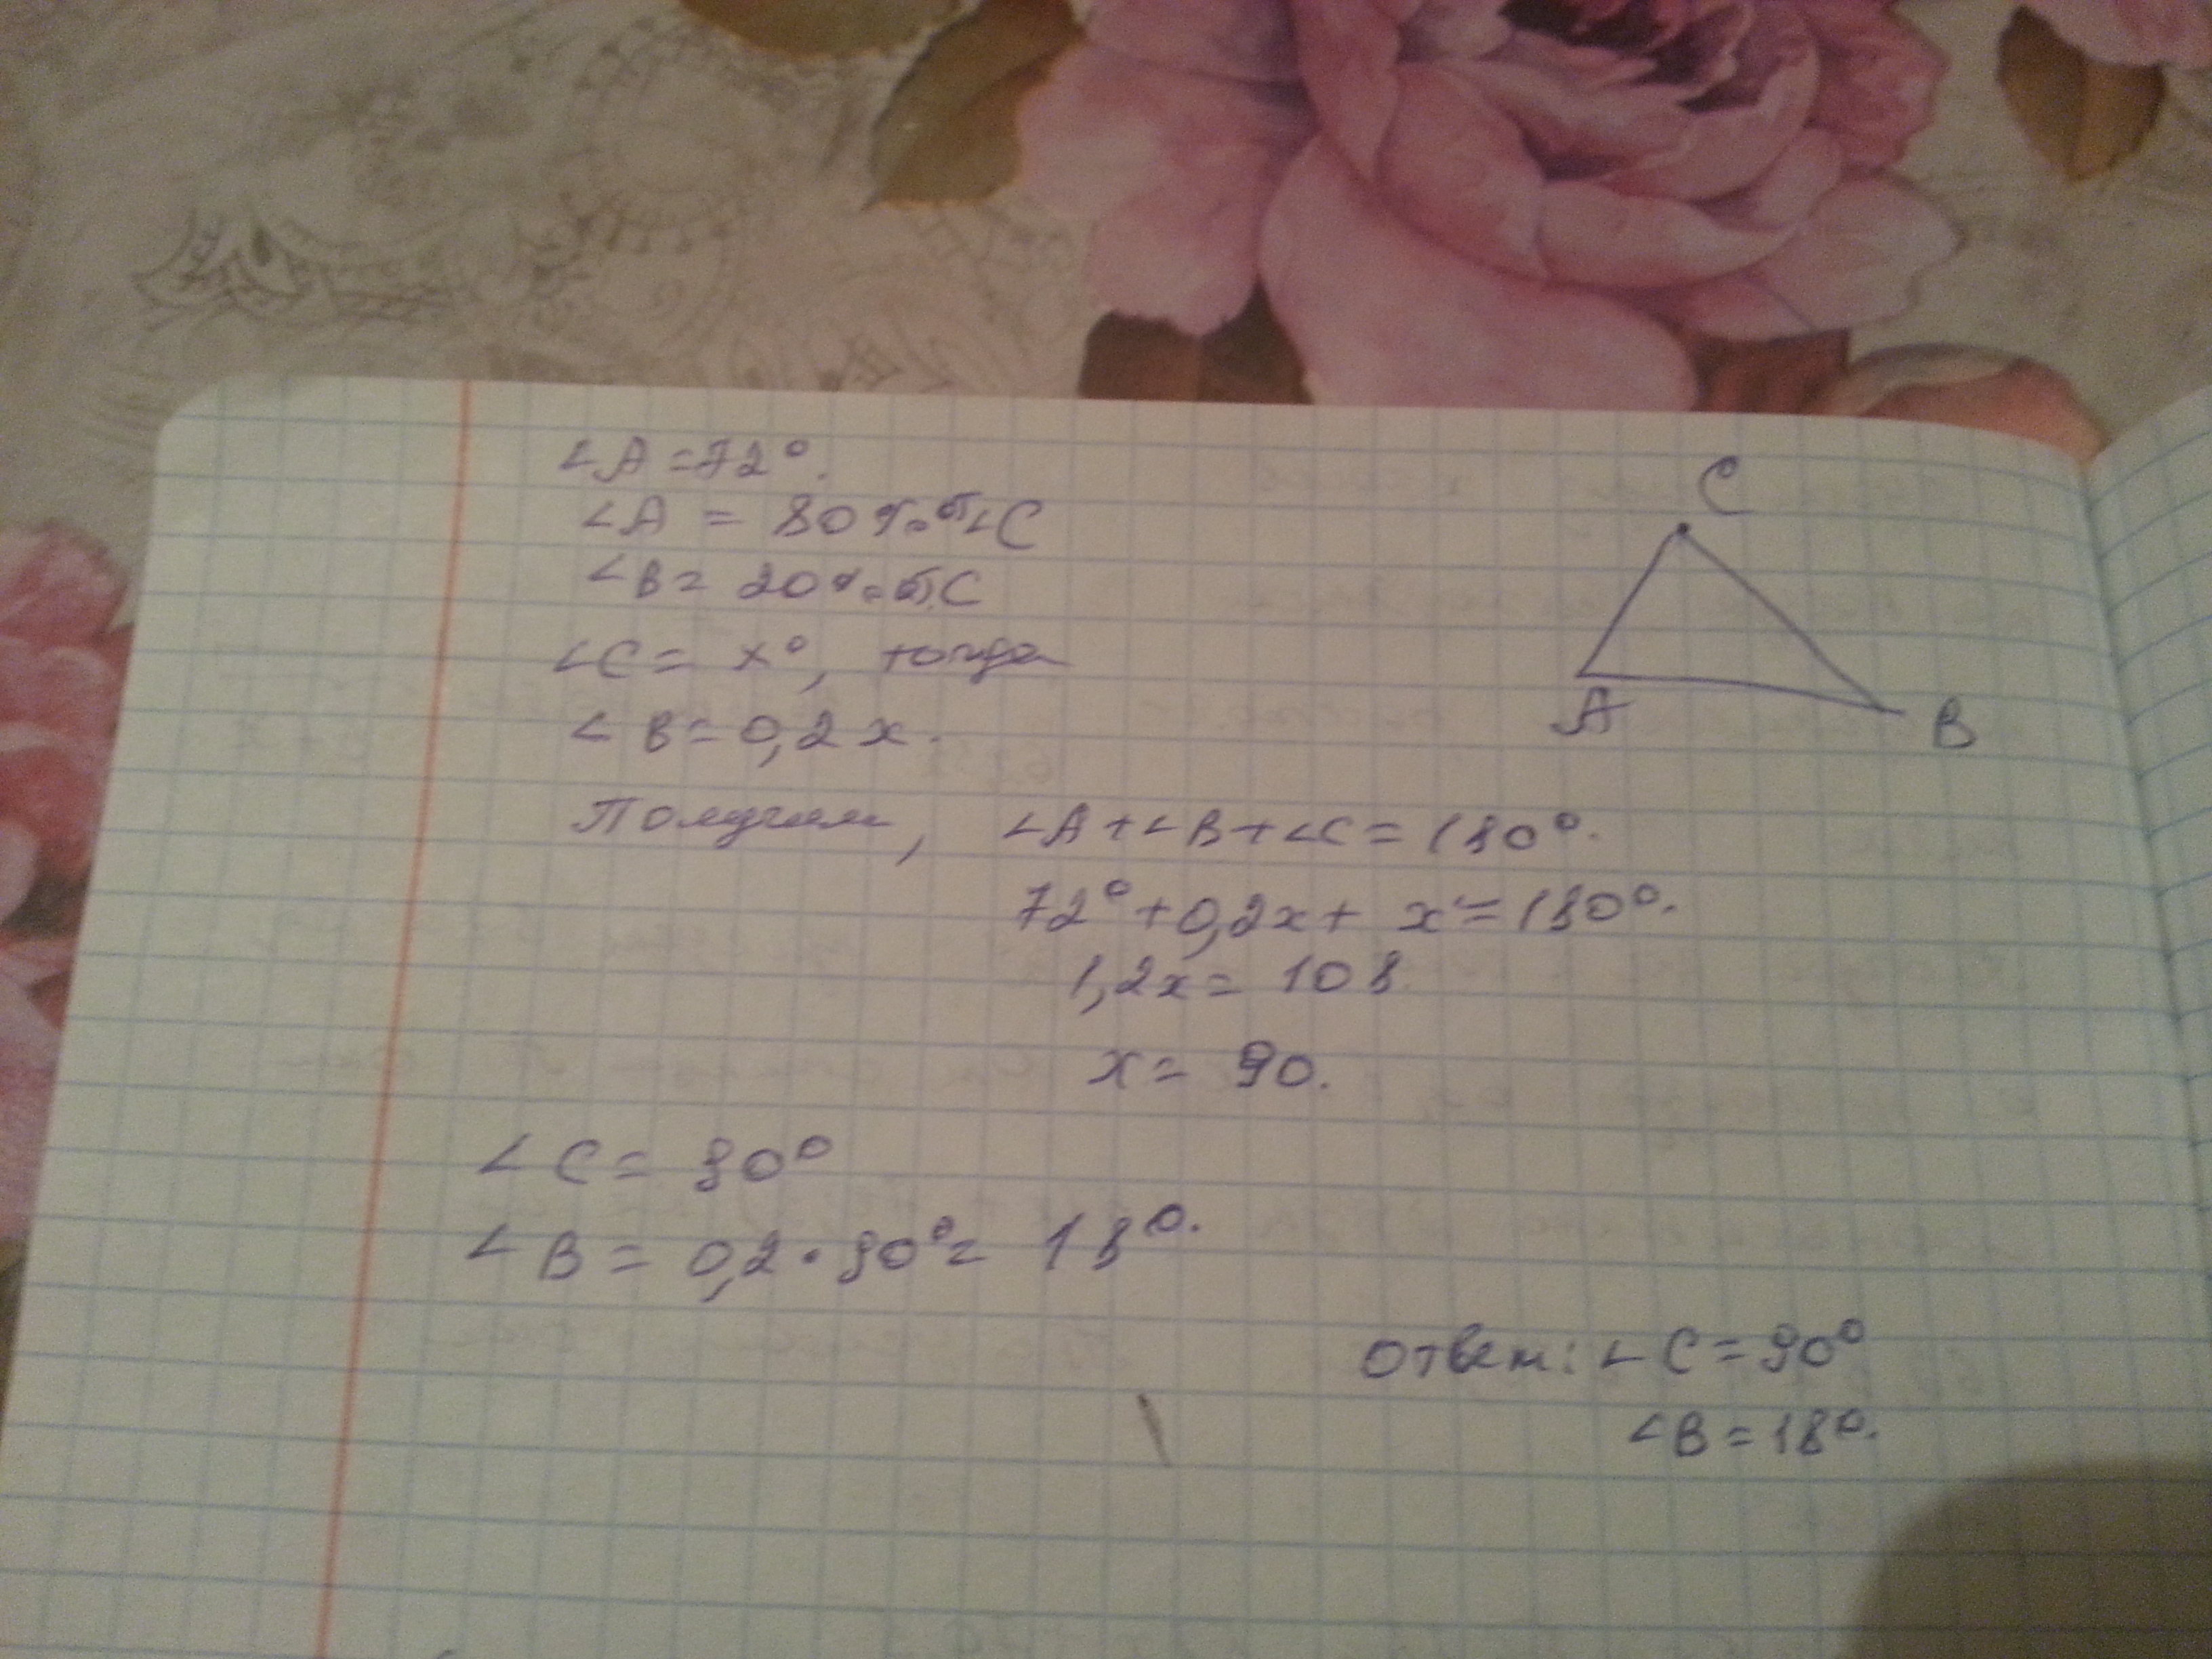 ∠A = 72°.
∠A = 80% от ∠C
∠B = 20% от C
∠C = x°, тогда
∠B = 0,2x.
C
A
B
Получим, ∠A + ∠B + ∠C = 180°.
72° + 0,2x + x = 180°.
1,2x = 108
x = 90.
∠C = 90°
∠B = 0,2 · 90° = 18°.
Ответ: ∠C = 90°
∠B = 18°.